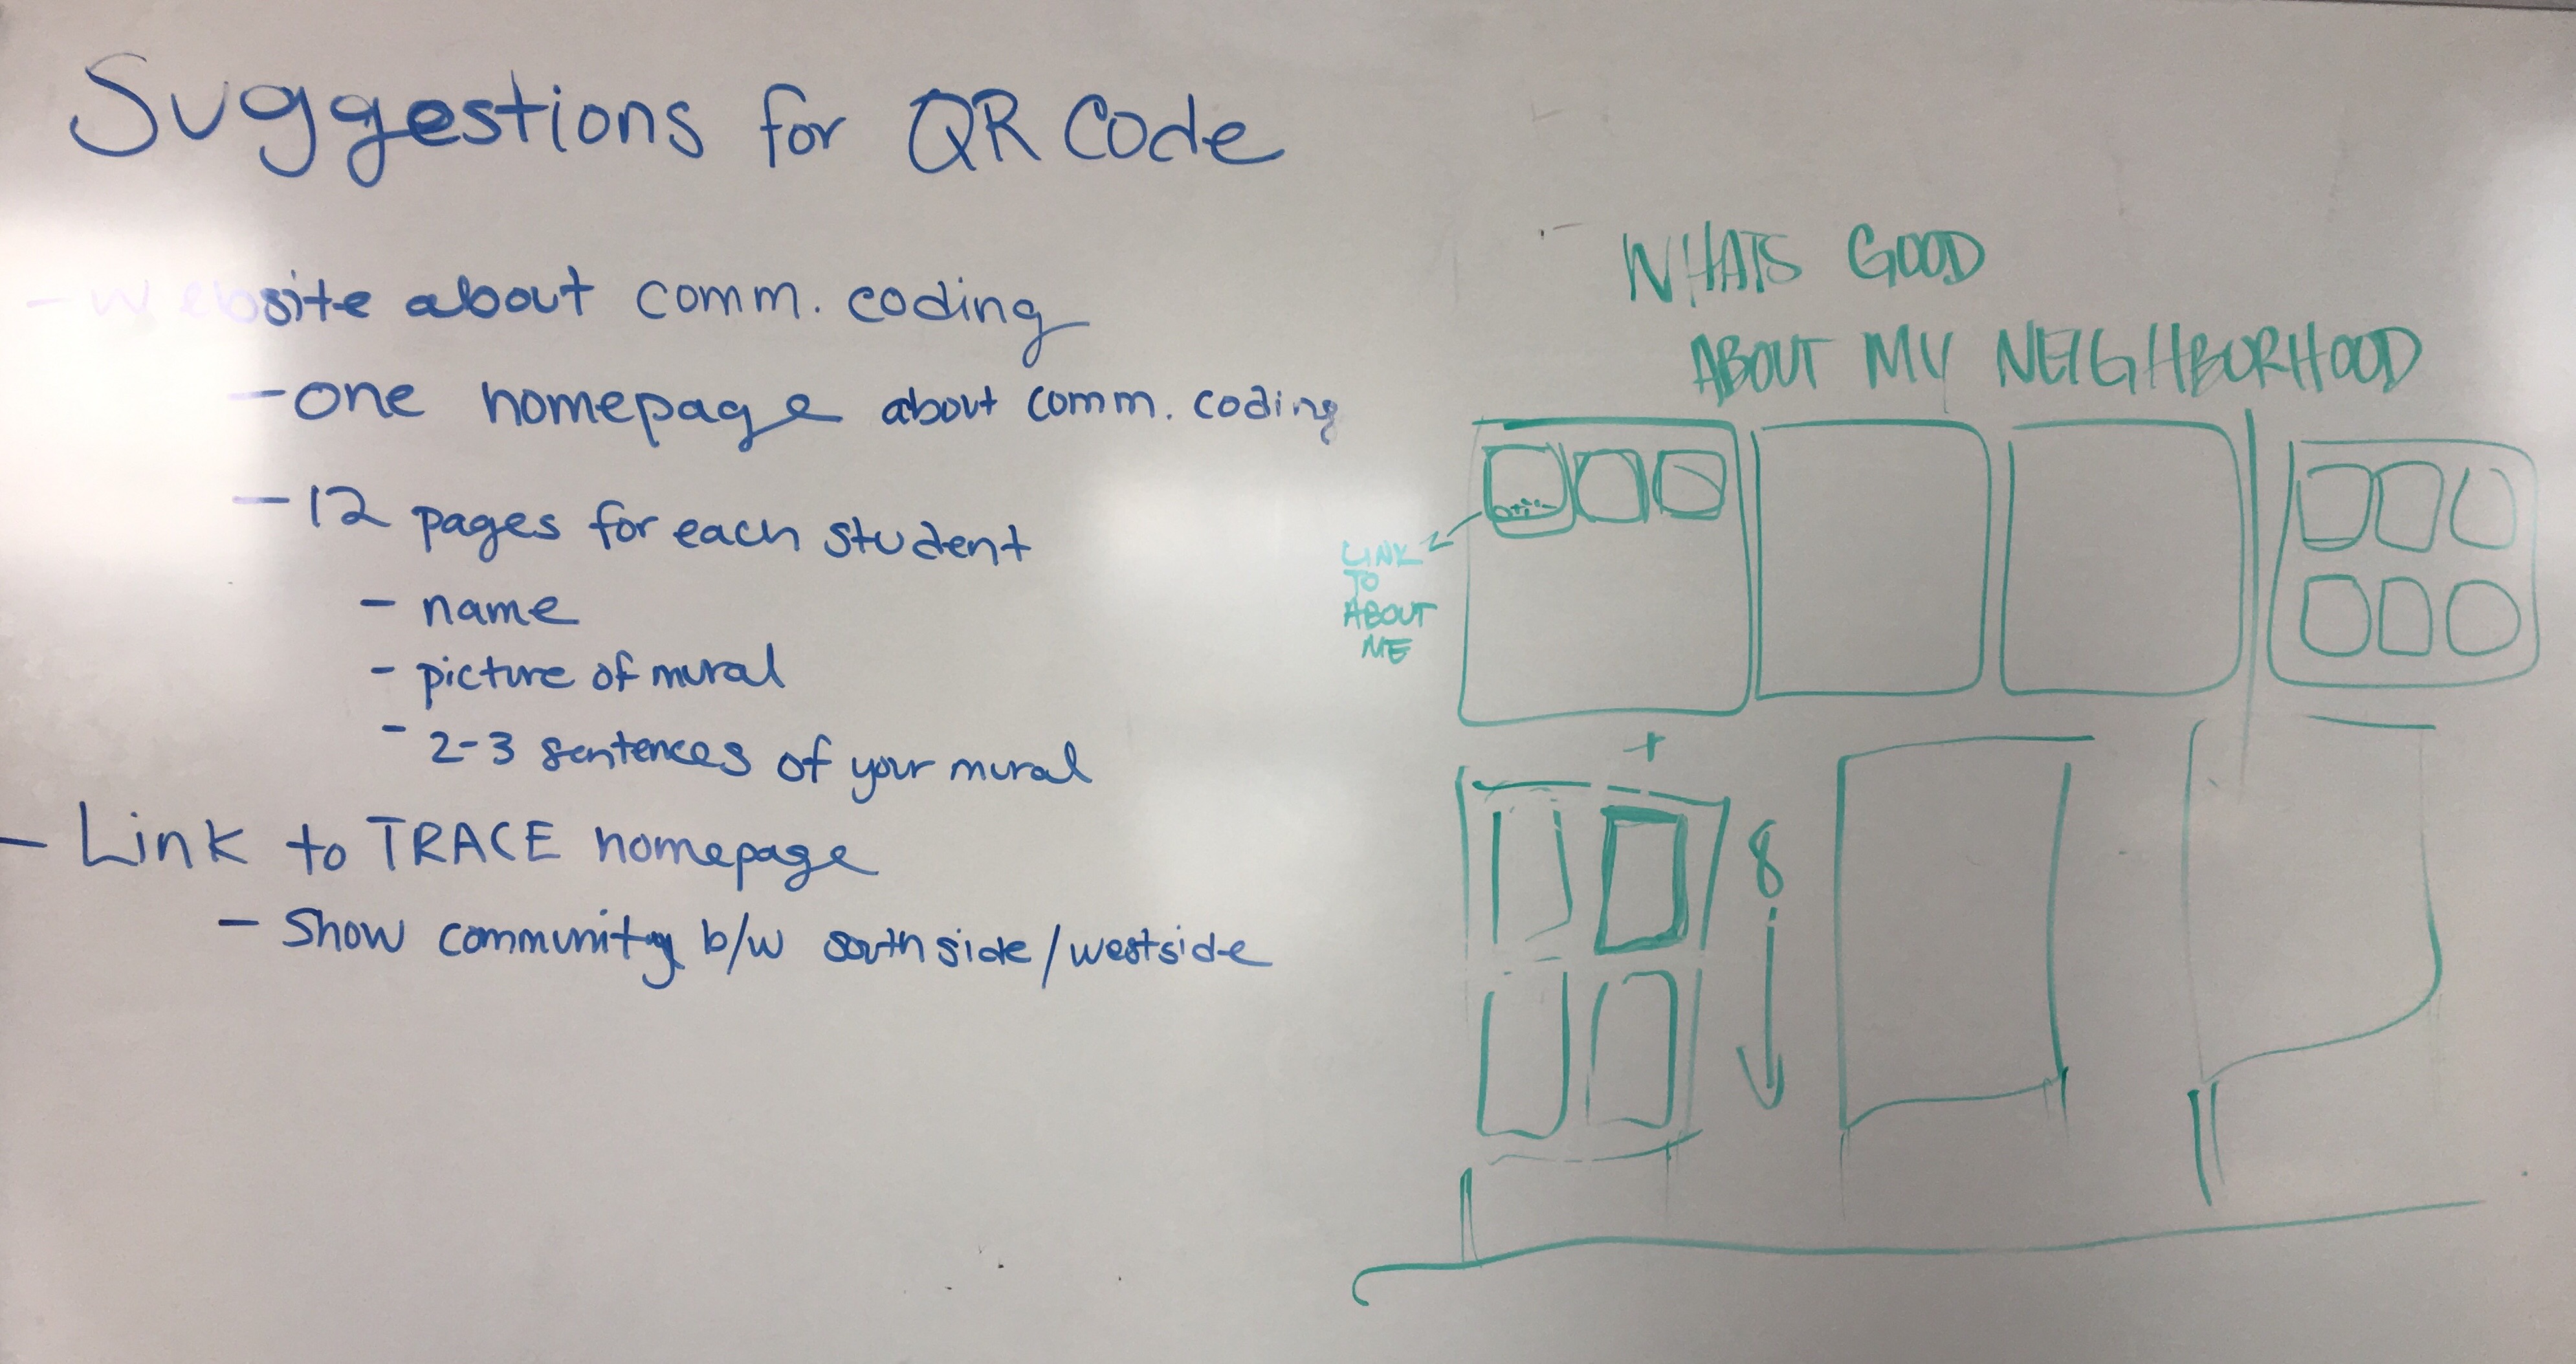 Suggestions for QR Code
- Website about comm. coding
- one homepage about comm. coding
- 12 pages for each student
- name
- picture of mural
- 2-3 sentences of your mural
- Link to TRACE homepage
- Show community b/w south side/westside
WHATS GOOD
ABOUT MY NEIGHBORHOOD
LINK
TO
ABOUT
ME
+
8